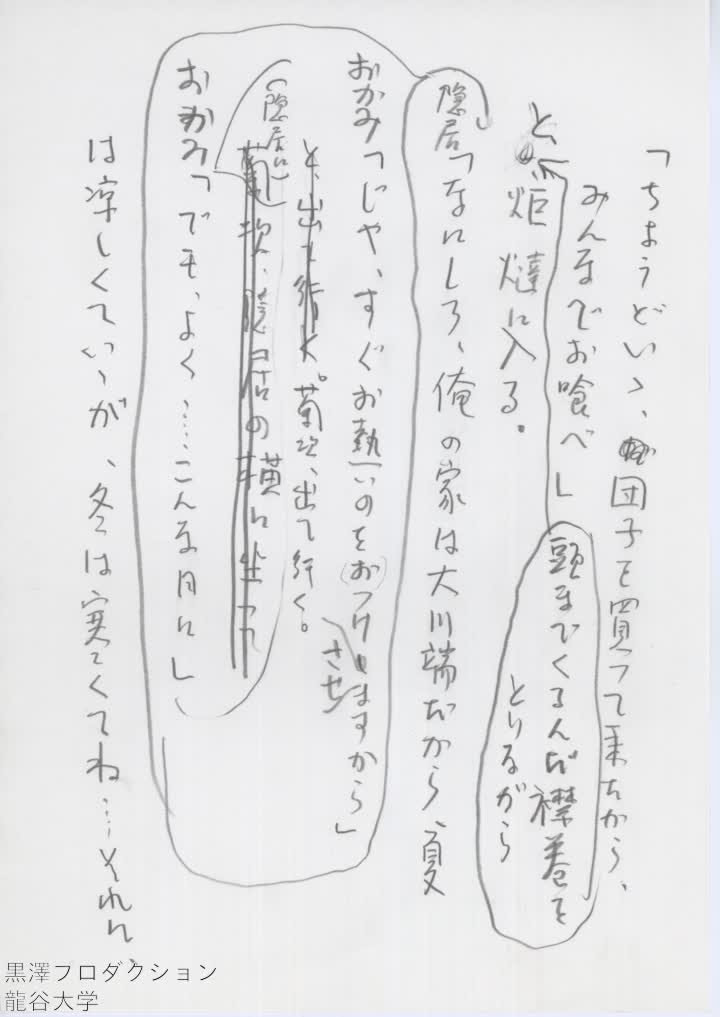 「ちょうどいゝ、団子を買って来たから、
みんなでお喰べ」
頭までくるんだ襟巻を
とりながら
と、
炬燵に入る。
隠居「なにしろ、俺の家は大川端だから、夏
おかみ「じゃ、すぐお熱いのをおつけしますから」
させ
と、出て行く。菊次、出て行く。
菊次、隠居の横に坐って
(隠居に)
おかみ「でも、よく……こんな日に」
は涼しくていゝが、冬は寒くてね…それに、
黒澤プロダクション
龍谷大学